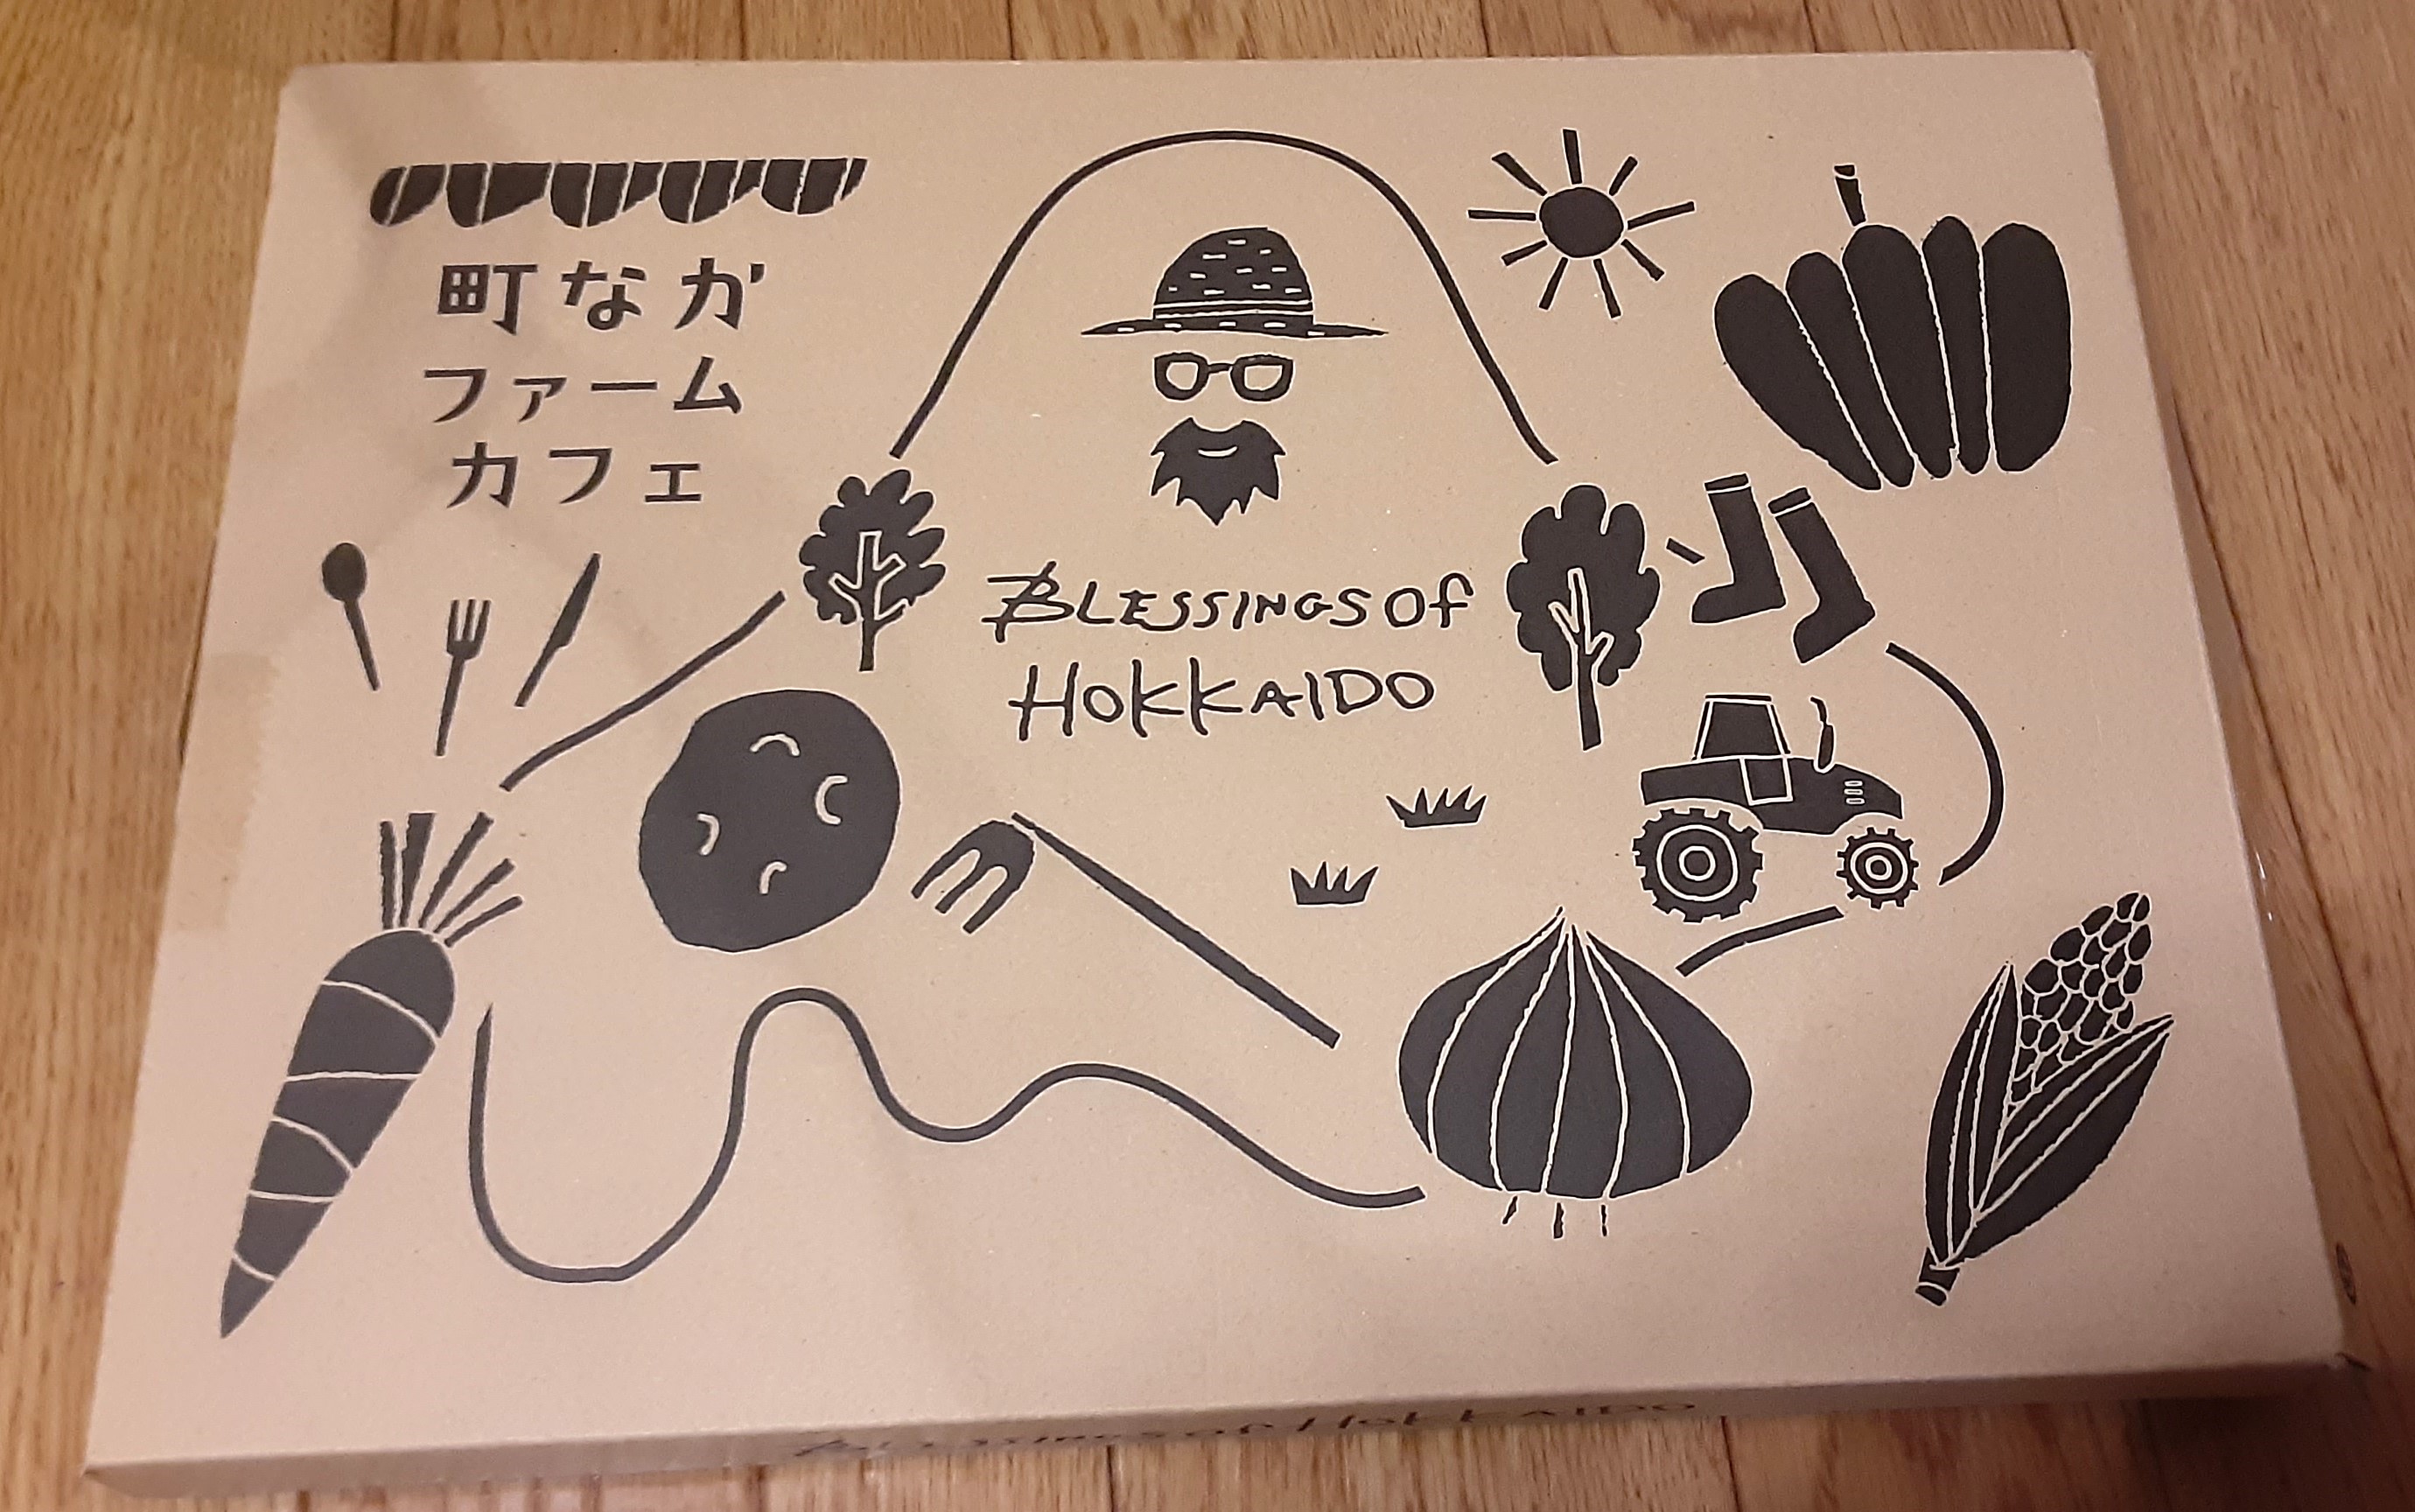 町なか
ファーム
カフェ
BLESSINGS OF
HOKKAIDO
BLESSINGS OF HOKKAIDO